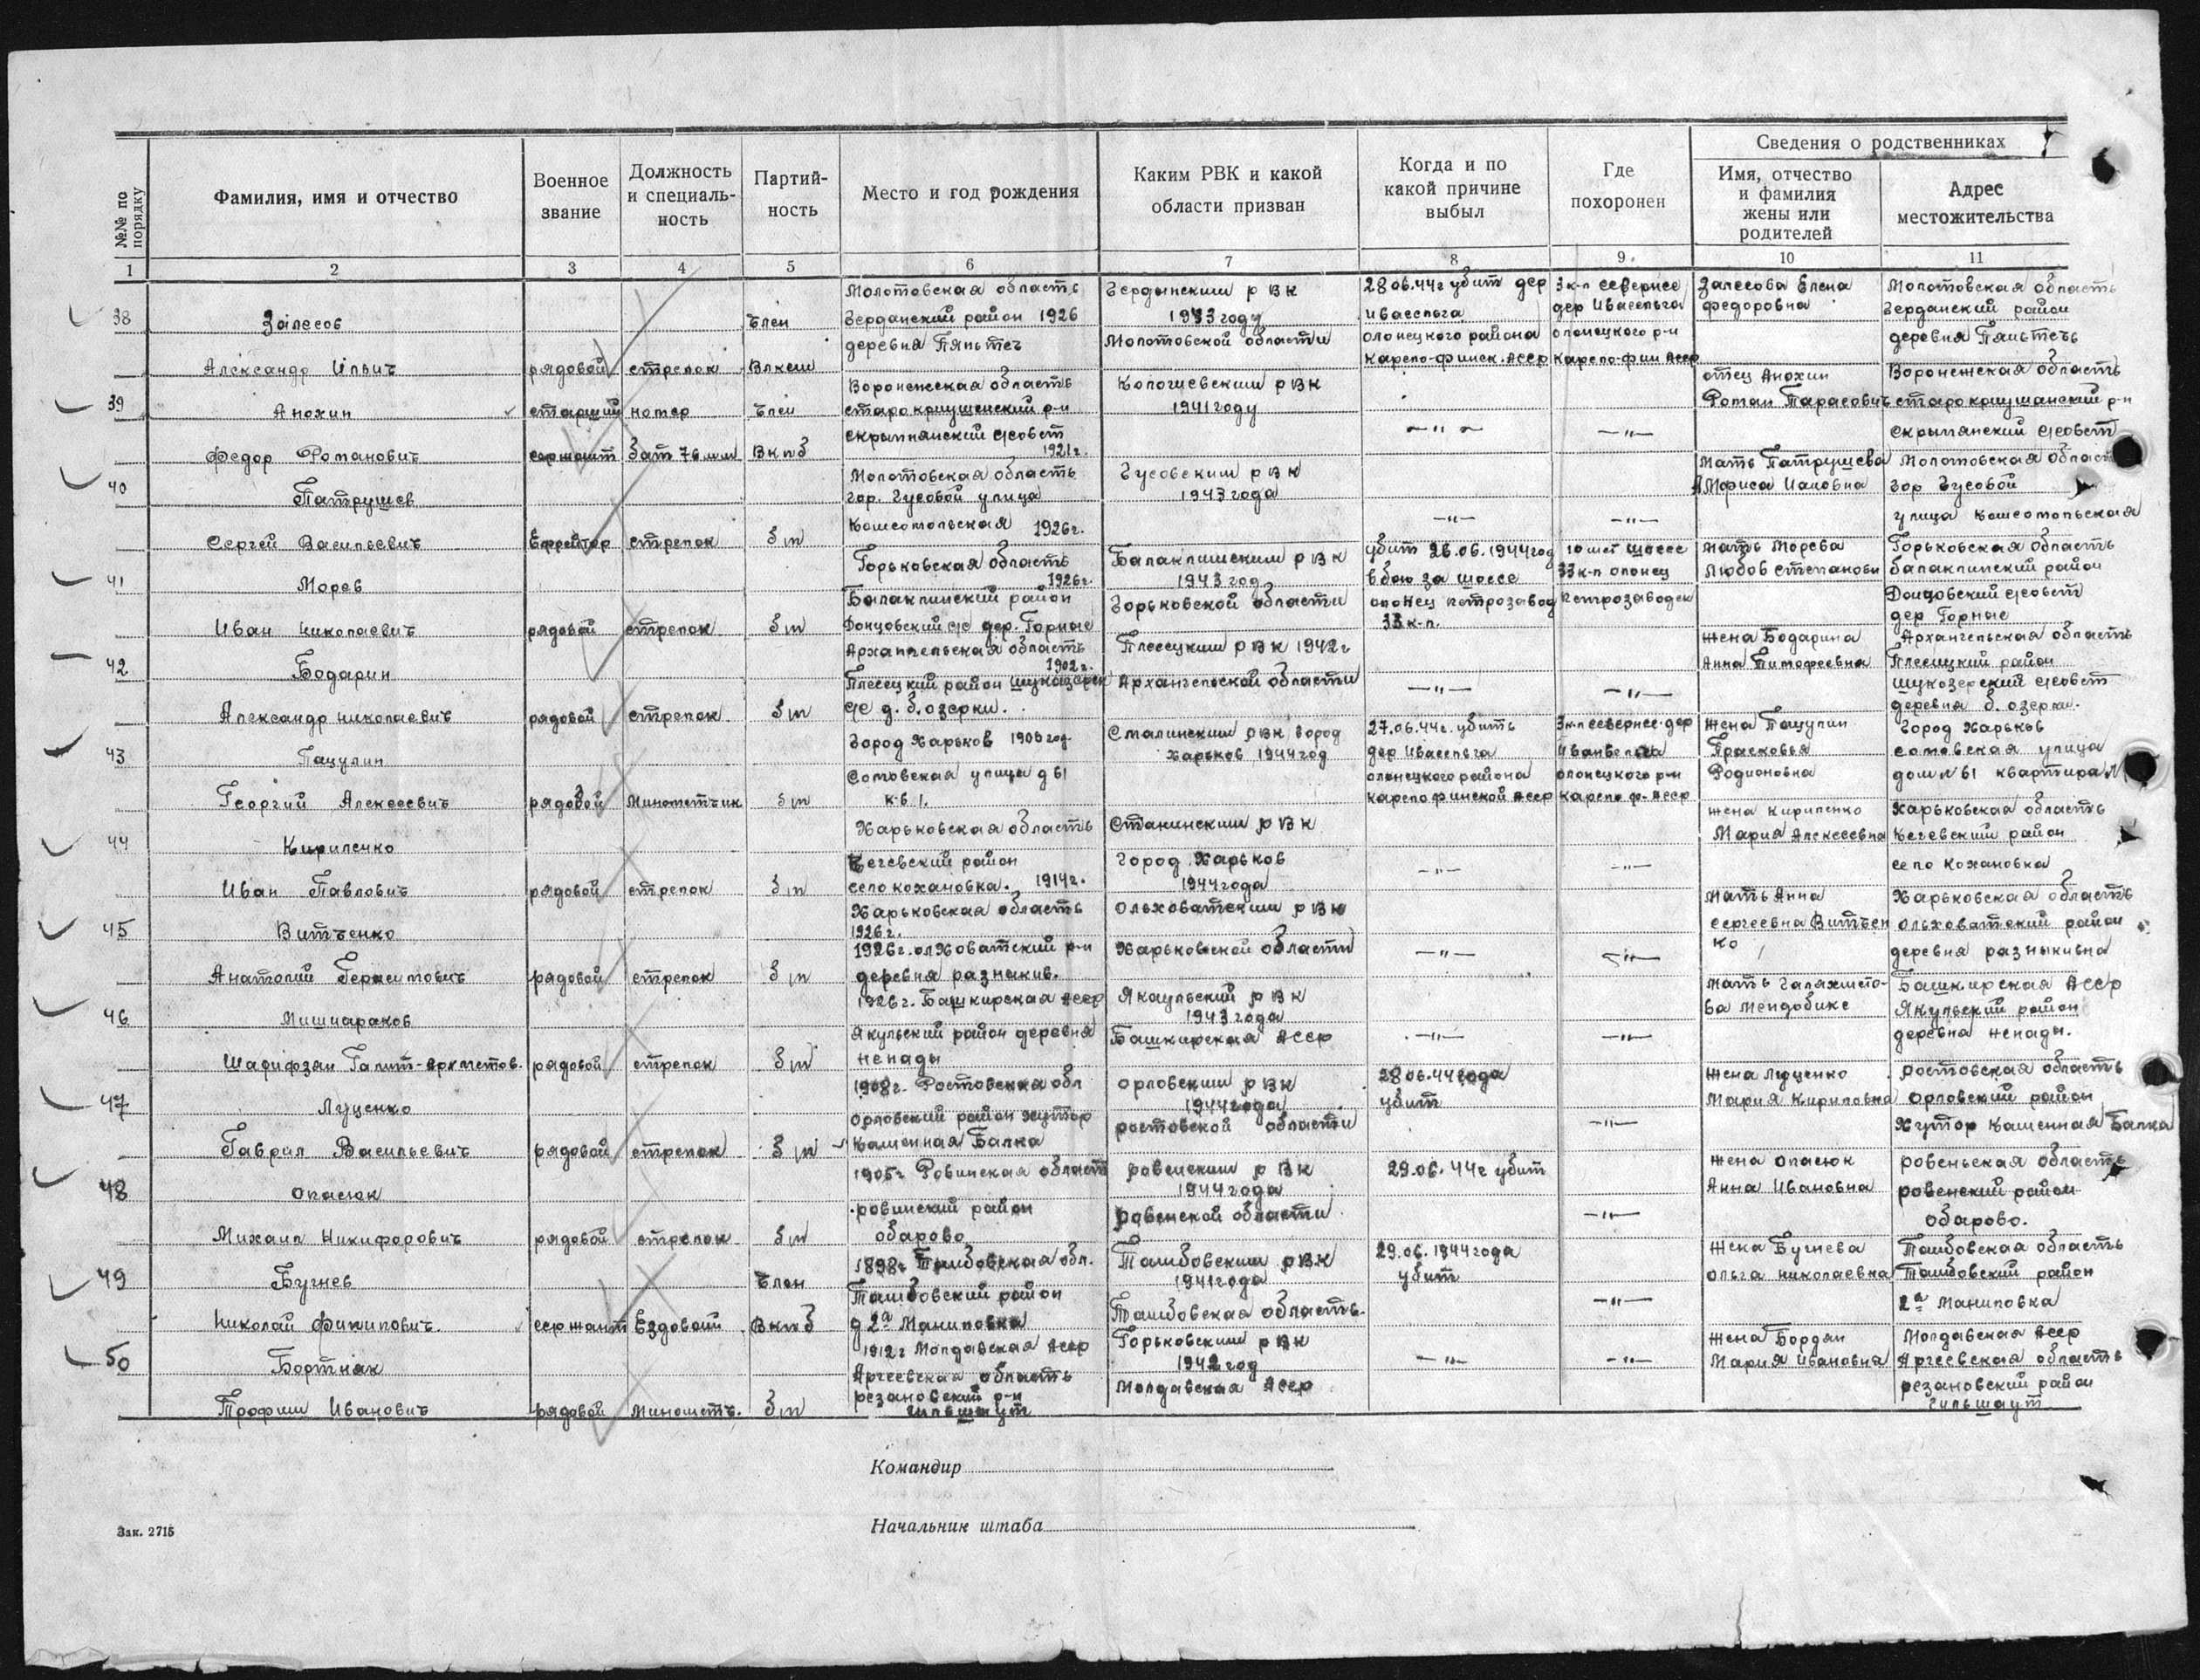 Сведения о родственниках
№№ по порядку
Фамилия, имя и отчество
Военное звание
Должность и специаль-ность
Партий-ность
Место и год рождения
Каким РВК и какой области призван
Когда и по какой причине выбыл
Где похоронен
Имя, отчество и фамилия жены или родителей
Адрес местожительства
1 2 3 4 5 6 7 8 9 10 11
38
Залесов
Александр Ильич
рядовой
стрелок
Член
Влксм
Молотовская область
Чердынский район 1926
деревня Пяньтег
Чердынским рвк
1943 году
Молотовской области
28.06.44г убит дер
Ивасельга
олонецкого района
карело-финск. Асср
3 к-л севернее
дер Ивасельга
олонецкого р-н
карело-фин Асср
Залесова Елена
Федоровна
Молотовская область
Чердынский район
деревня Пяньтегъ
39
Анохин
Федор Романович
старший
сержант
номер
бат 76 мм
Член
Вкпб
Воронежская область
старокриушенский р-н
скрыпнянский с/совет
1921г.
рвк
1941 году
— " —
— " —
отец Анохин
Роман Тарасович
Воронежская область
старокриушанский р-н
скрыпянский с/совет
40
Патрушев
Сергей Васильевич
Ефрейтор
стрелок
б п
Молотовская область
гор. Чусовой улица
Комсомольская 1926г.
Чусовским рвк
1943 года
— " —
— " —
Мать Патрушева
Молотовская область
гор Чусовой
улица Комсомольская
41
Морев
Иван Николаевич
рядовой
стрелок
б п
Горьковская область
1926г.
Балахнинский район
с/с дер. Горные
рвк
1943 год
Горьковской области
убит 26.06.1944 год
в бою за шоссе
олонец петрозавод
33 к-л.
10 мет шоссе
33 к-л олонец
петрозаводск
Мать Морева
Любов Степановн
Горьковская область
балахнинский район
с/совет
дер Горные
42
Бодарин
Александр Николаевич
рядовой
стрелок
б п
Архангельская область
1902г.
Плесецкий район
с/с д. б. озерки.
Плесецким рвк 1942г
Архангельской области
— " —
— " —
жена Бодарина
Анна Тимофеевна
Архангельская область
Плесицкий район
шукозерский с/совет
деревня б. озерки.
43
Пацулин
Георгий Алексеевич
рядовой
Минометчик
б п
Город Харьков
Сомовская улица д 61
к-в 1.
Сталинским рвк город
Харьков 1944 год
27.06.44г. убить
дер Ивасельга
олонецкого района
карело финской Асср
3 к-л севернее. дер
олонецкого р-н
карело ф- Асср
жена Пацулин
Прасковья
Родионовна
Город Харьков
сомовская улица
дом N 61 квартира
44
Кириленко
Иван Павлович
рядовой
стрелок
б п
Харьковская область
Кегевский район
село кохановка. 1914г.
рвк
город Харьков
1944 года
— " —
— " —
жена Кириленко
Мария Алексеевна
Харьковская область
Кегевский район
село Кохановка
45
Витченко
Анатолий Герасимович
рядовой
стрелок
б п
Харьковская область
1926г.
1926г. олховатский р-н
деревня
Ольховатским рвк
Харьковской области
— " —
— " —
Мать Анна
Сергеевна Витчен
ко
Харьковская область
Ольховатский район
деревня
46
рядовой
стрелок
б п
1926г. Башкирская Асср
Якульский район деревня
ненады
Якаульский рвк
1943 года
Башкирская Асср
— " —
— " —
Башкирская Асср
Якульский район
деревня ненады.
47
Луценко
Гаврил Васильевич
рядовой
стрелок
б п
1908г. Ростовская обл
Орловский район хутор
Каменная Балка
орловским рвк
1944 года
ростовской области
28.06.44 года
убит
— " —
Жена Луценко
Мария Кириловна
ростовская область
Орловский район
Хутор Каменная Балка
48
Опасюк
Михаил Никифорович
рядовой
стрелок
б п
1905г Ровинская область
ровинский район
обарово
ровенским рвк
1944 года
ровенской области
29.06.44г убит
— " —
Жена Опасюк
Анна Ивановна
ровеньская область
ровенский район
обарово.
49
Бугнев
Николай Филипович.
сержант
Ездовой
Член
Вкпб
1898г Тамбовская обл.
Тамбовский район
д 2ª Маниловка
Тамбовским рвк
1941 года
Тамбовская область.
29.06.1944 года
убит
— " —
Жена Бугнева
Ольга Николаевна
Тамбовская область
Тамбовский район
2ª Маниловка
50
Бортняк
Трофим Иванович
рядовой
Минометч.
б п
1912г Молдавская Асср
Аргеевская область
резановский р-н
Горьковским рвк
1942 год
Молдавская Асср
— " —
— " —
Жена Бордян
Мария Ивановна
Молдавская Асср
Аргеевская область
резановский район
Командир
Начальник штаба
Зак. 2715